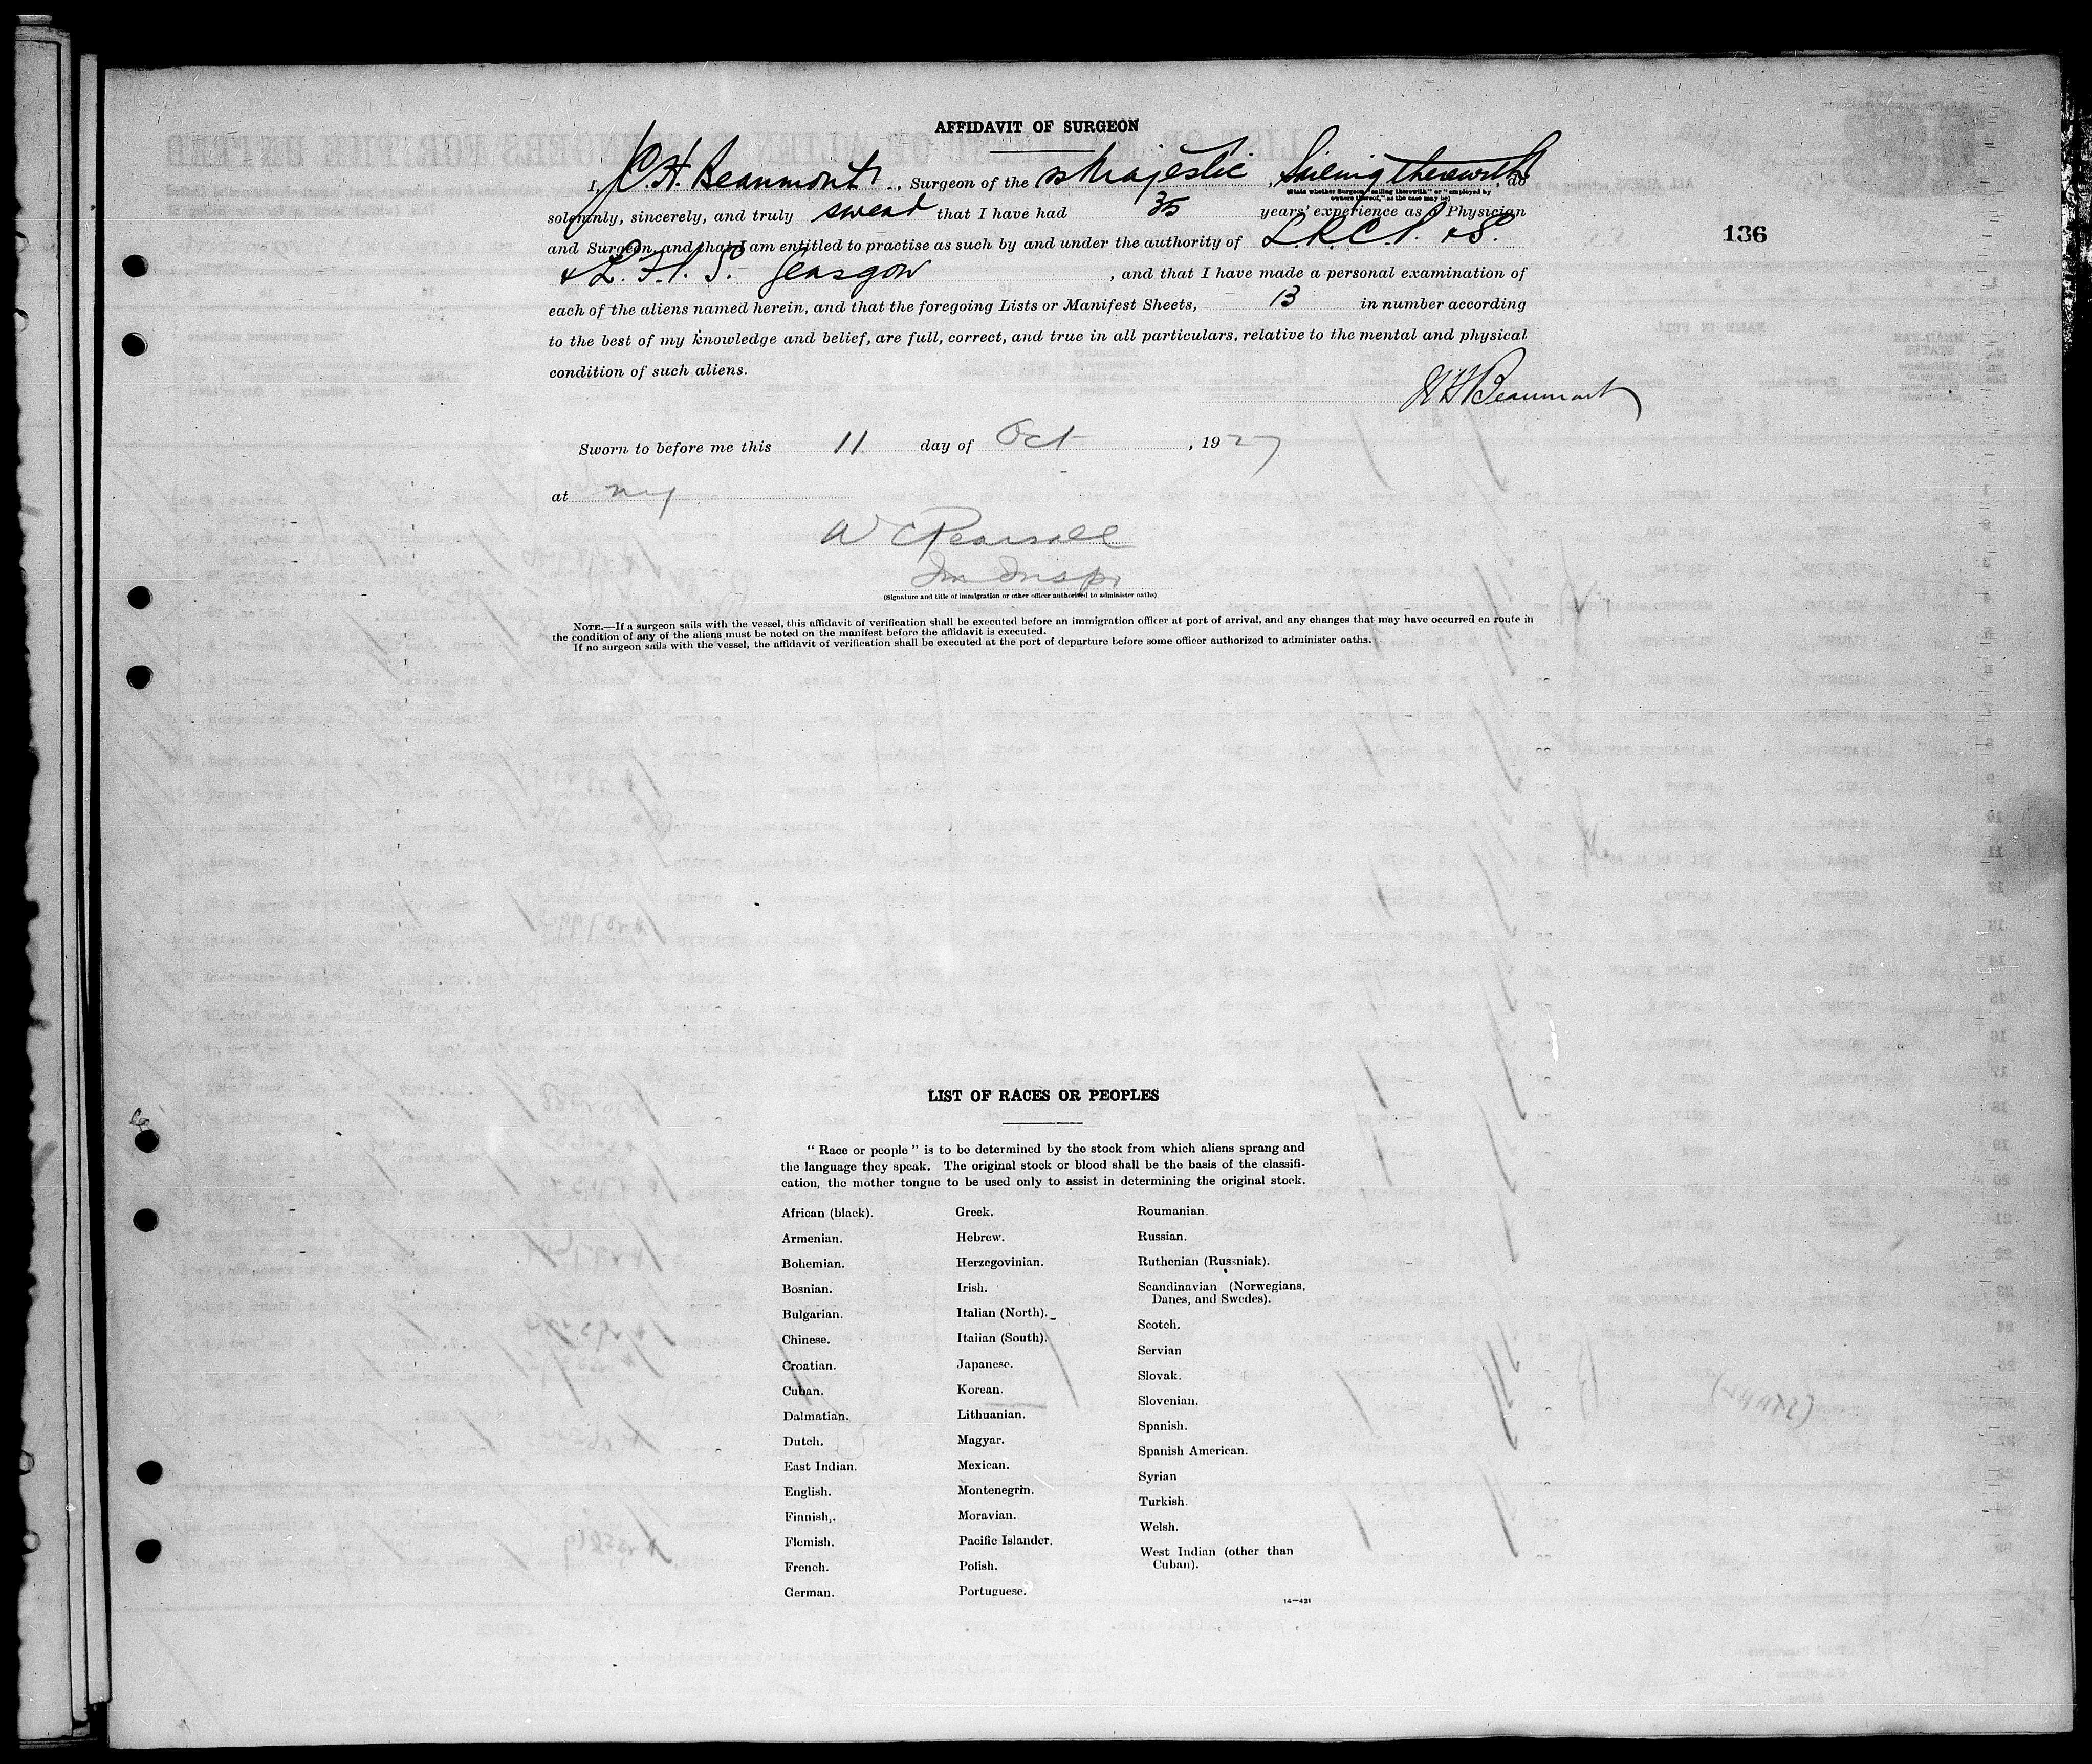 AFFIDAVIT OF SURGEON
I, J.C.H. Beaumont, Surgeon of the ss Majestic, Sailing therewith, do
(State whether Surgeon "sailing therewith" or "employed by
owners thereof," as the case may be)
solemnly, sincerely, and truly swear that I have had 35 years' experience as a Physician
and Surgeon, and that I am entitled to practise as such by and under the authority of L.R.C.P. & S.
136
& L.F.P.S. Glasgow, and that I have made a personal examination of
each of the aliens named herein, and that the foregoing Lists or Manifest Sheets, 13 in number according
to the best of my knowledge and belief, are full, correct, and true in all particulars, relative to the mental and physical
condition of such aliens.
Beaumont
Sworn to before me this 11 day of Oct, 1927
at NY
W C Pearsall
Im Insp
(Signature and title of immigration or other officer authorized to administer oaths)
NOTE.—If a surgeon sails with the vessel, this affidavit of verification shall be executed before an immigration officer at port of arrival, and any changes that may have occurred en route in
the condition of any of the aliens must be noted on the manifest before the affidavit is executed.
If no surgeon sails with the vessel, the affidavit of verification shall be executed at the port of departure before some officer authorized to administer oaths.
LIST OF RACES OR PEOPLES
" Race or people " is to be determined by the stock from which aliens sprang and
the language they speak. The original stock or blood shall be the basis of the classifi-
cation, the mother tongue to be used only to assist in determining the original stock.
African (black).
Armenian.
Bohemian.
Bosnian.
Bulgarian.
Chinese.
Croatian.
Cuban.
Dalmatian.
Dutch.
East Indian.
English.
Finnish.
Flemish.
French.
German.
Greek.
Hebrew.
Herzegovinian.
Irish.
Italian (North).
Italian (South).
Japanese.
Korean.
Lithuanian.
Magyar.
Mexican.
Montenegrin.
Moravian.
Pacific Islander.
Polish.
Portuguese.
Roumanian.
Russian.
Ruthenian (Russniak).
Scandinavian (Norwegians,
Danes, and Swedes).
Scotch.
Servian
Slovak.
Slovenian.
Spanish.
Spanish American.
Syrian
Turkish.
Welsh.
West Indian (other than
Cuban).
14—421